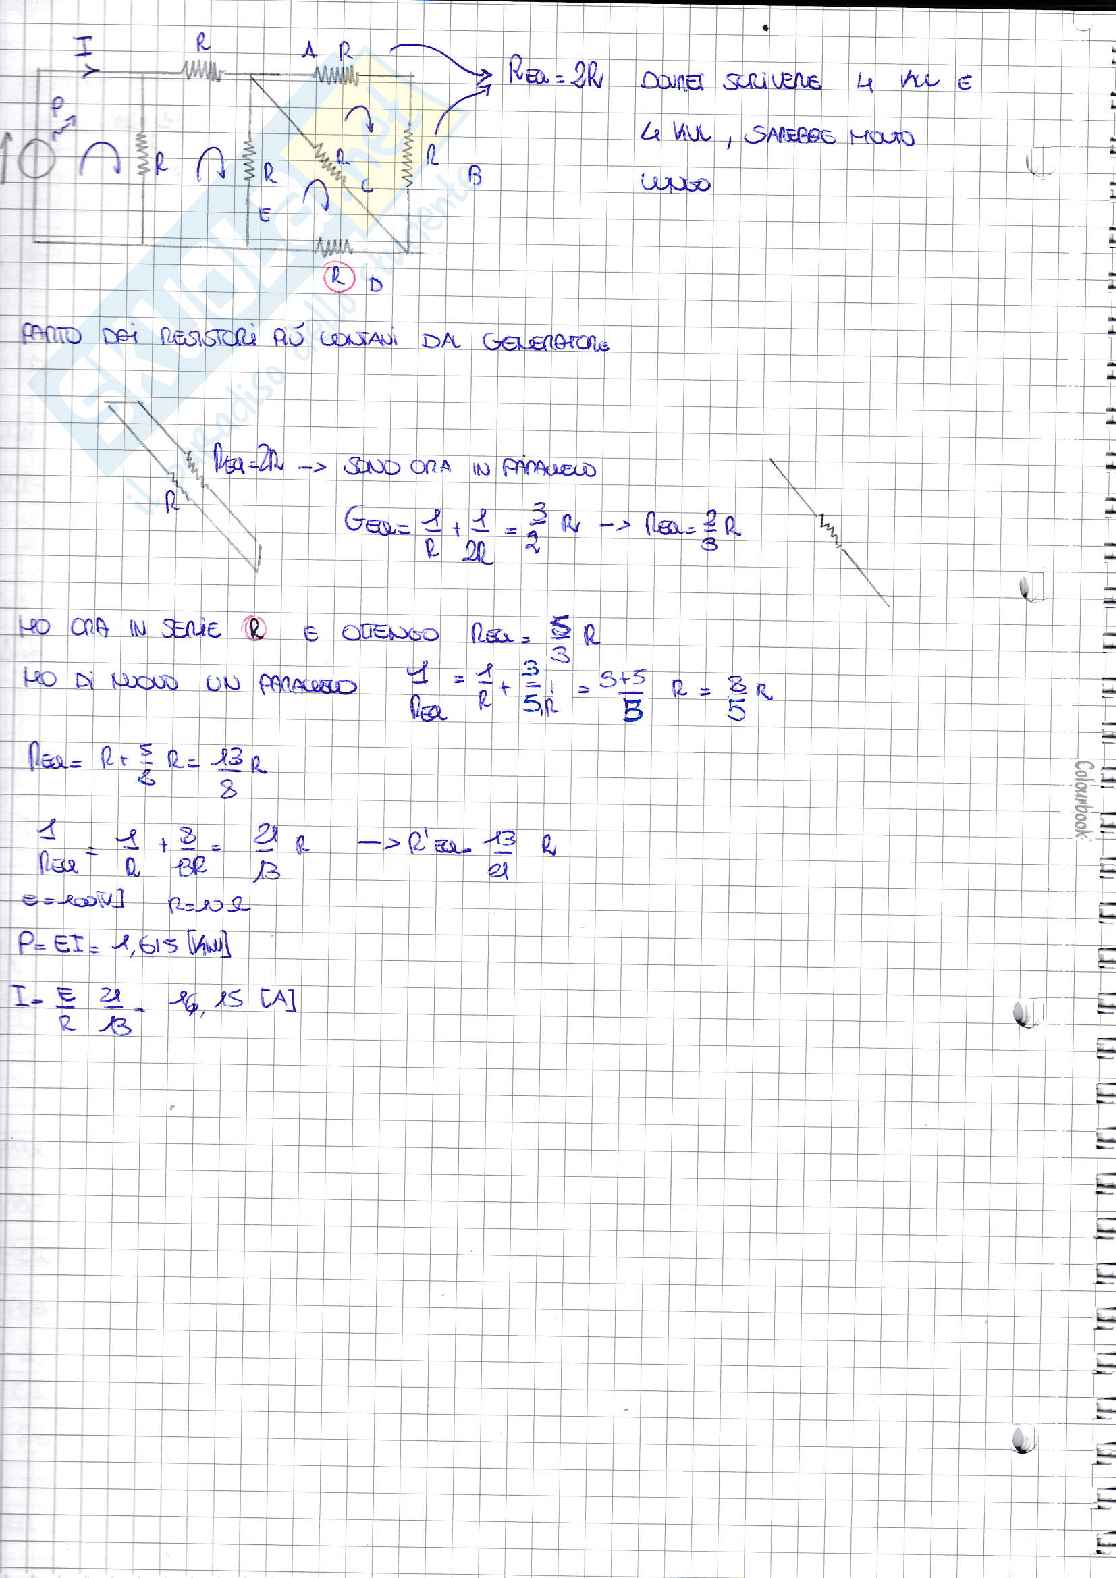 I R A R REQ = 2R DOVREI SCRIVERE 4 KU E
4 KUL, SAREBBE MOLTO
LUNGO
P R R R C R B
E
R D
PARTO DAI RESISTORI PIÚ LONTANI DAL GENERATORE
REQ=2R -> SONO ORA IN PARALLELO
R
GEQ = 1/R + 1/2R = 3/2 R -> REQ = 2/3 R
HO ORA IN SERIE R E OTTENGO REQ = 5/3 R
HO DI NUOVO UN PARALLELO 1/REQ = 1/R + 3/5R = 3+5/5 R = 8/5 R
REQ = R + 5/8 R = 13/8 R
1/REQ = 1/R + 8/13R = 21/13 R -> R'EQ = 13/21 R
E=100[V] R=10Ω
P = EI = 1,615 [KW]
I = E/R 21/13 = 16,15 [A]
Colourbook
SKUOLA.net
il paradiso dello studente